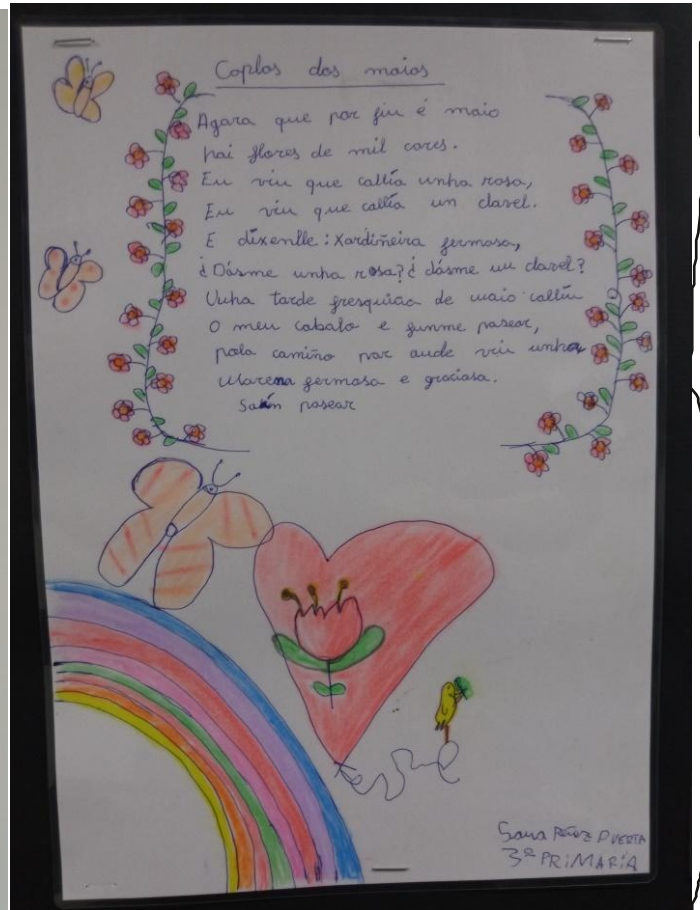 Coplas dos maios
Agora que por fin é maio
hai flores de mil cores.
Eu vin que collía unha rosa,
Eu vin que collía un clavel.
E díxenlle: Xardiñeira fermosa,
¿Dásme unha rosa? ¿dásme un clavel?
Unha tarde fresquiña de maio collín
O meu cabalo e funme pasear,
polo camiño por onde viu unha
Morena fermosa e graciosa.
Saín pasear
Sara Pérez Puerta
3º PRIMARIA